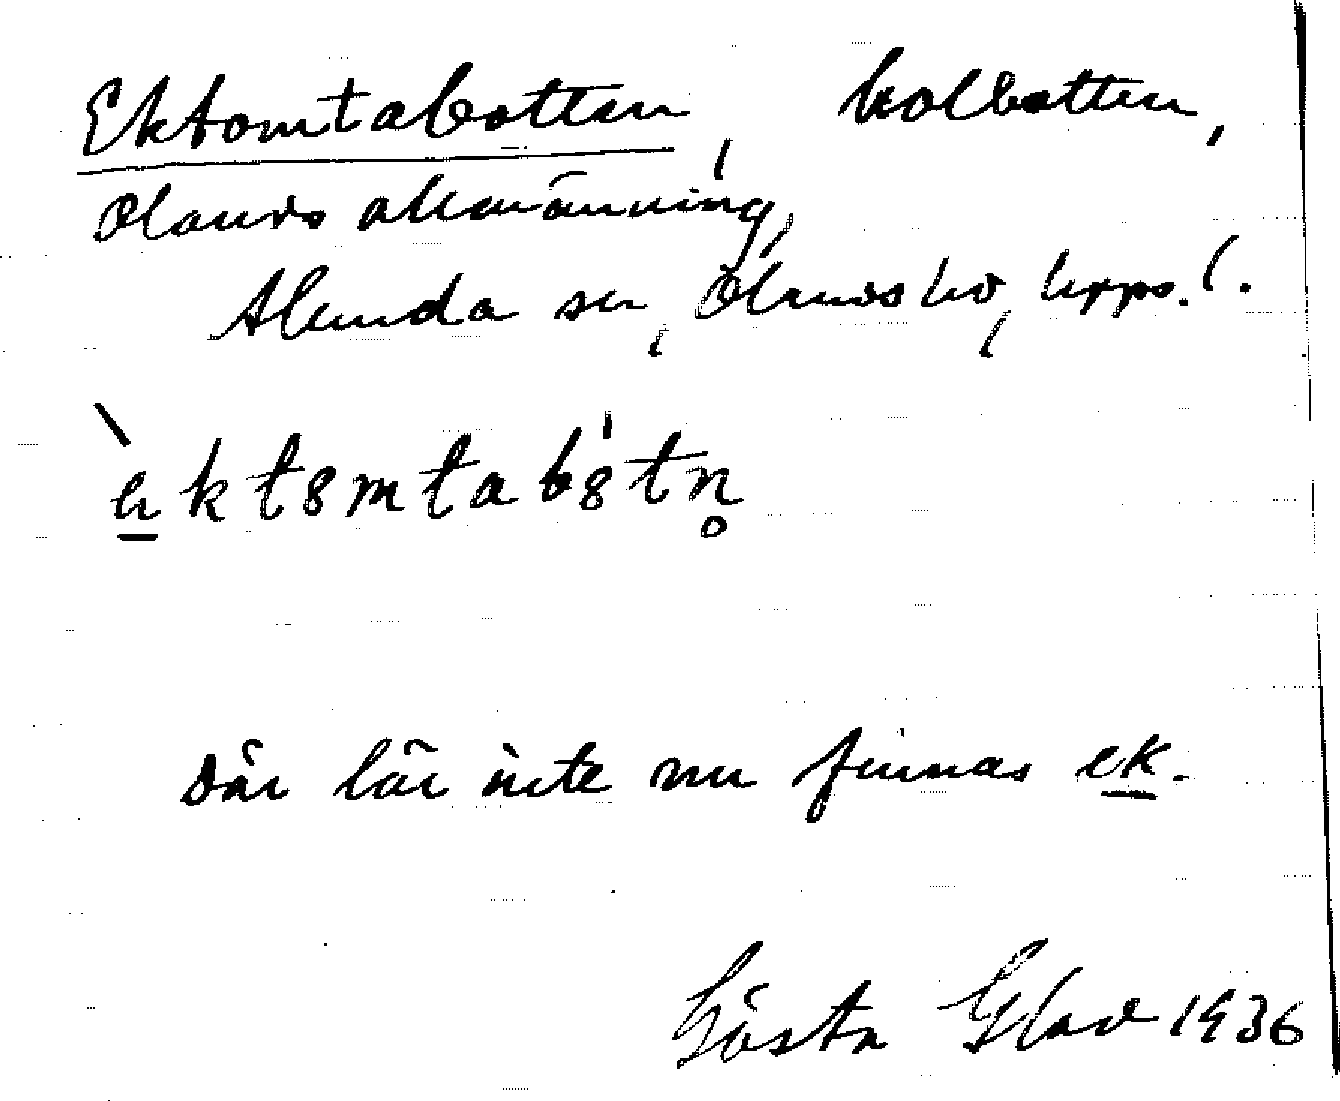 Ektomtabotten, kolbotten,
Olands allmänning,
Alunda sn, Olands hd, Upps. l.
ektomtabotn
Där lär inte nu finnas ek.
Gösta Glad 1936